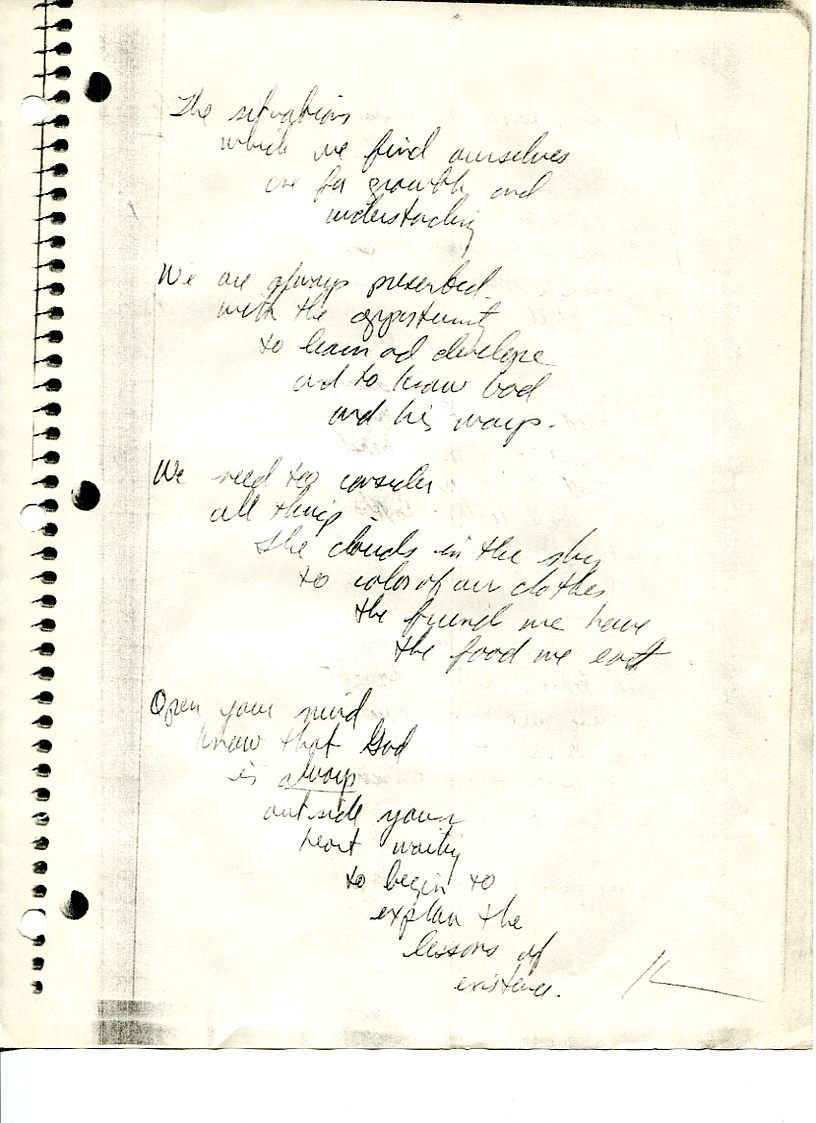 The situations
which we find ourselves
are for growth and
understanding
We are always presented
with the opportunity
to learn and develope
and to know God
and his ways.
We need to consider
all things -
the clouds in the sky
to color of our clothes
the friend we have
the food we eat
Open your mind
know that God
is always
outside your
heart waiting
to begin to
explain the
lessons of
existence.
K